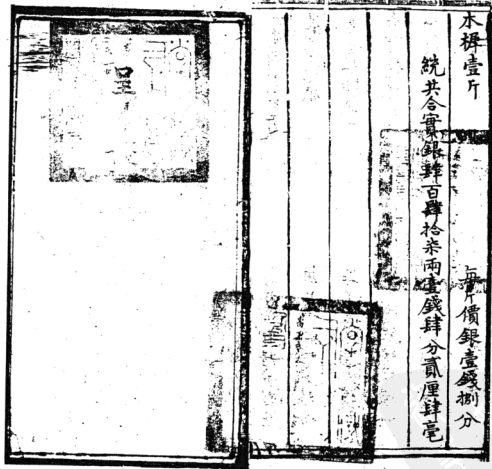 木樨壹斤
每斤價銀壹錢捌分
統共合實銀肆百肆拾柒兩壹錢肆分貳厘肆毫
呈